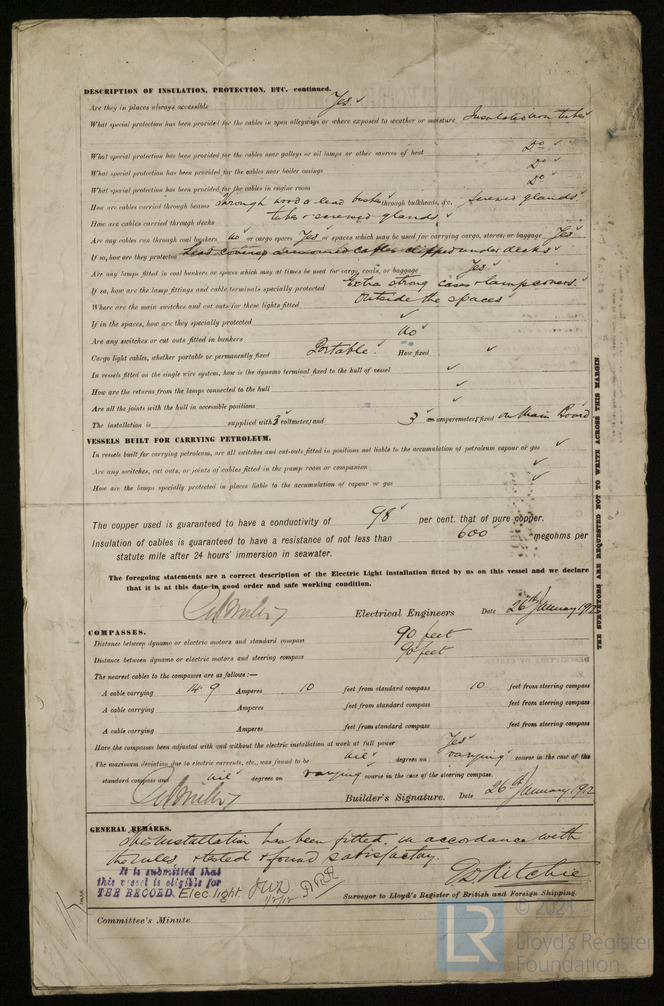 DESCRIPTION OF INSULATION, PROTECTION, ETC. continued.
Are they in places always accessible Yes.
What special protection has been provided for the cables in open alleyways or where exposed to weather or moisture Insulated iron tubes
What special protection has been provided for the cables near galleys or oil lamps or other sources of heat Do
What special protection has been provided for the cables near boiler casings Do
What special protection has been provided for the cables in engine room Do
How are cables carried through beams through wood & lead bushes through bulkheads, &c. screwed glands
How are cables carried through decks tubes & screwed glands.
Are any cables run through coal bunkers No or cargo spaces Yes or spaces which may be used for carrying cargo, stores, or baggage Yes.
If so, how are they protected Lead covered armoured cables clipped under decks
Are any lamps fitted in coal bunkers or spaces which may at times be used for cargo, coals, or baggage Yes.
If so, how are the lamp fittings and cable terminals specially protected Extra strong cases & lamp corners.
Where are the main switches and cut outs for these lights fitted outside the spaces
If in the spaces, how are they specially protected
Are any switches or cut outs fitted in bunkers No
Cargo light cables, whether portable or permanently fixed Portable. How fixed
In vessels fitted on the single wire system, how is the dynamo terminal fixed to the hull of vessel
How are the returns from the lamps connected to the hull
Are all the joints with the hull in accessible positions
The installation is supplied with 3 voltmeters and 3 amperemeters, fixed on Main Board
VESSELS BUILT FOR CARRYING PETROLEUM.
In vessels built for carrying petroleum, are all switches and cut-outs fitted in positions not liable to the accumulation of petroleum vapour or gas
Are any switches, cut outs, or joints of cables fitted in the pump room or companion
How are the lamps specially protected in places liable to the accumulation of vapour or gas
The copper used is guaranteed to have a conductivity of 98 per cent. that of pure copper.
Insulation of cables is guaranteed to have a resistance of not less than 600 megohms per
statute mile after 24 hours' immersion in seawater.
The foregoing statements are a correct description of the Electric Light installation fitted by us on this vessel and we declare
that it is at this date in good order and safe working condition.
Electrical Engineers Date 26th January 1912
COMPASSES.
Distance between dynamo or electric motors and standard compass 90 feet
Distance between dynamo or electric motors and steering compass 90 feet
The nearest cables to the compasses are as follows:—
A cable carrying 14.9 Amperes 10 feet from standard compass 10 feet from steering compass
A cable carrying Amperes feet from standard compass feet from steering compass
A cable carrying Amperes feet from standard compass feet from steering compass
Have the compasses been adjusted with and without the electric installation at work at full power Yes
The maximum deviation due to electric currents, etc., was found to be nil degrees on varying course in the case of the
standard compass and nil degrees on varying course in the case of the steering compass.
Builder's Signature. Date 26th January 1912
GENERAL REMARKS.
This installation has been fitted, in accordance with
the rules, tested & found satisfactory.
It is submitted that
this vessel is eligible for
THE RECORD. Elec light.
Ritchie
Surveyor to Lloyd's Register of British and Foreign Shipping.
Committee's Minute
THE SURVEYORS ARE REQUESTED NOT TO WRITE ACROSS THIS MARGIN
LR
© 2021
Lloyd's Register
Foundation